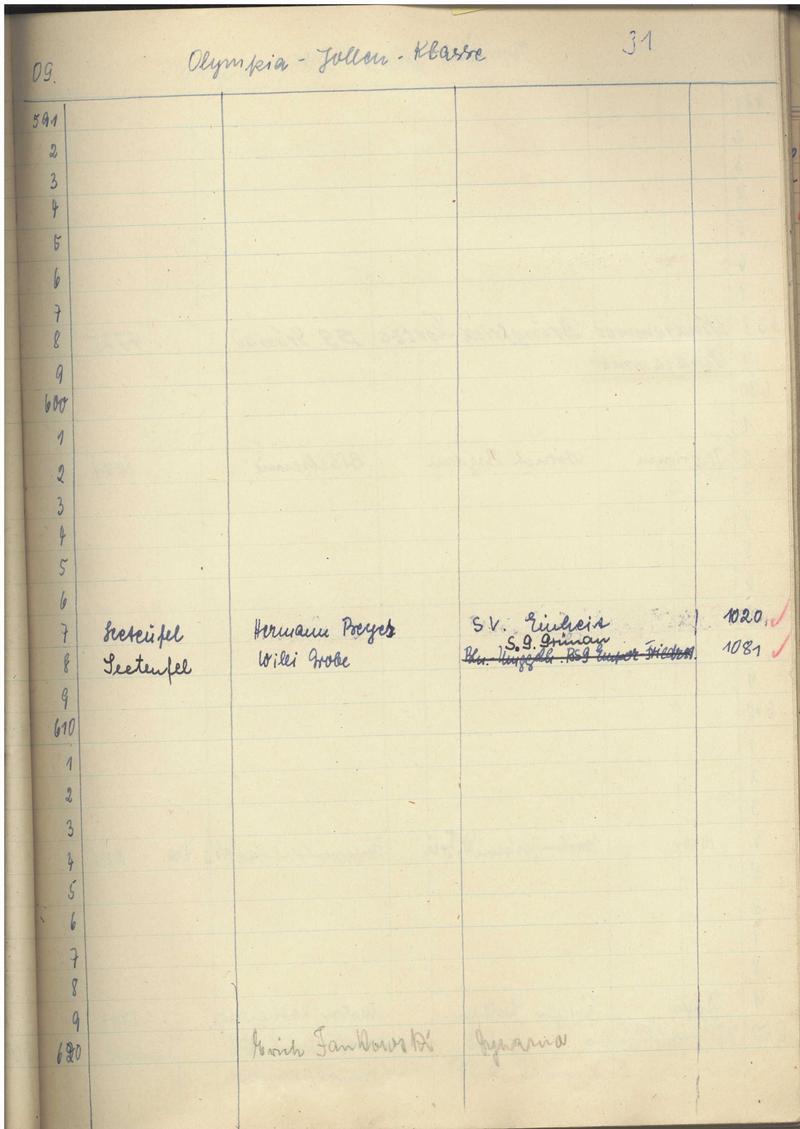 09. Olympia-Jollen-Klasse 31
591
2
3
4
5
6
7
8
9
600
1
2
3
4
5
6
7 Seeteufel Hermann Preyer S.V. Einheit 1020
S.G. Grünau
8 Seeteufel Willi Grobe 1081
9
610
1
2
3
4
5
6
7
8
9
620 Erich Jankowski